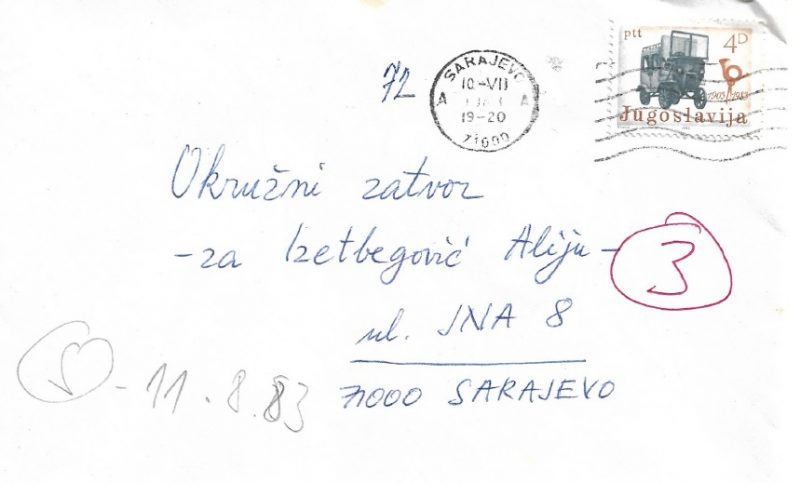 ptt
4D
1903 1983
Jugoslavija
SARAJEVO
10-VII
19-20
A A
71000
72
Okružni zatvor
-za Izetbegović Aliju-
3
ul. JNA 8
71000 SARAJEVO
-11.8.83